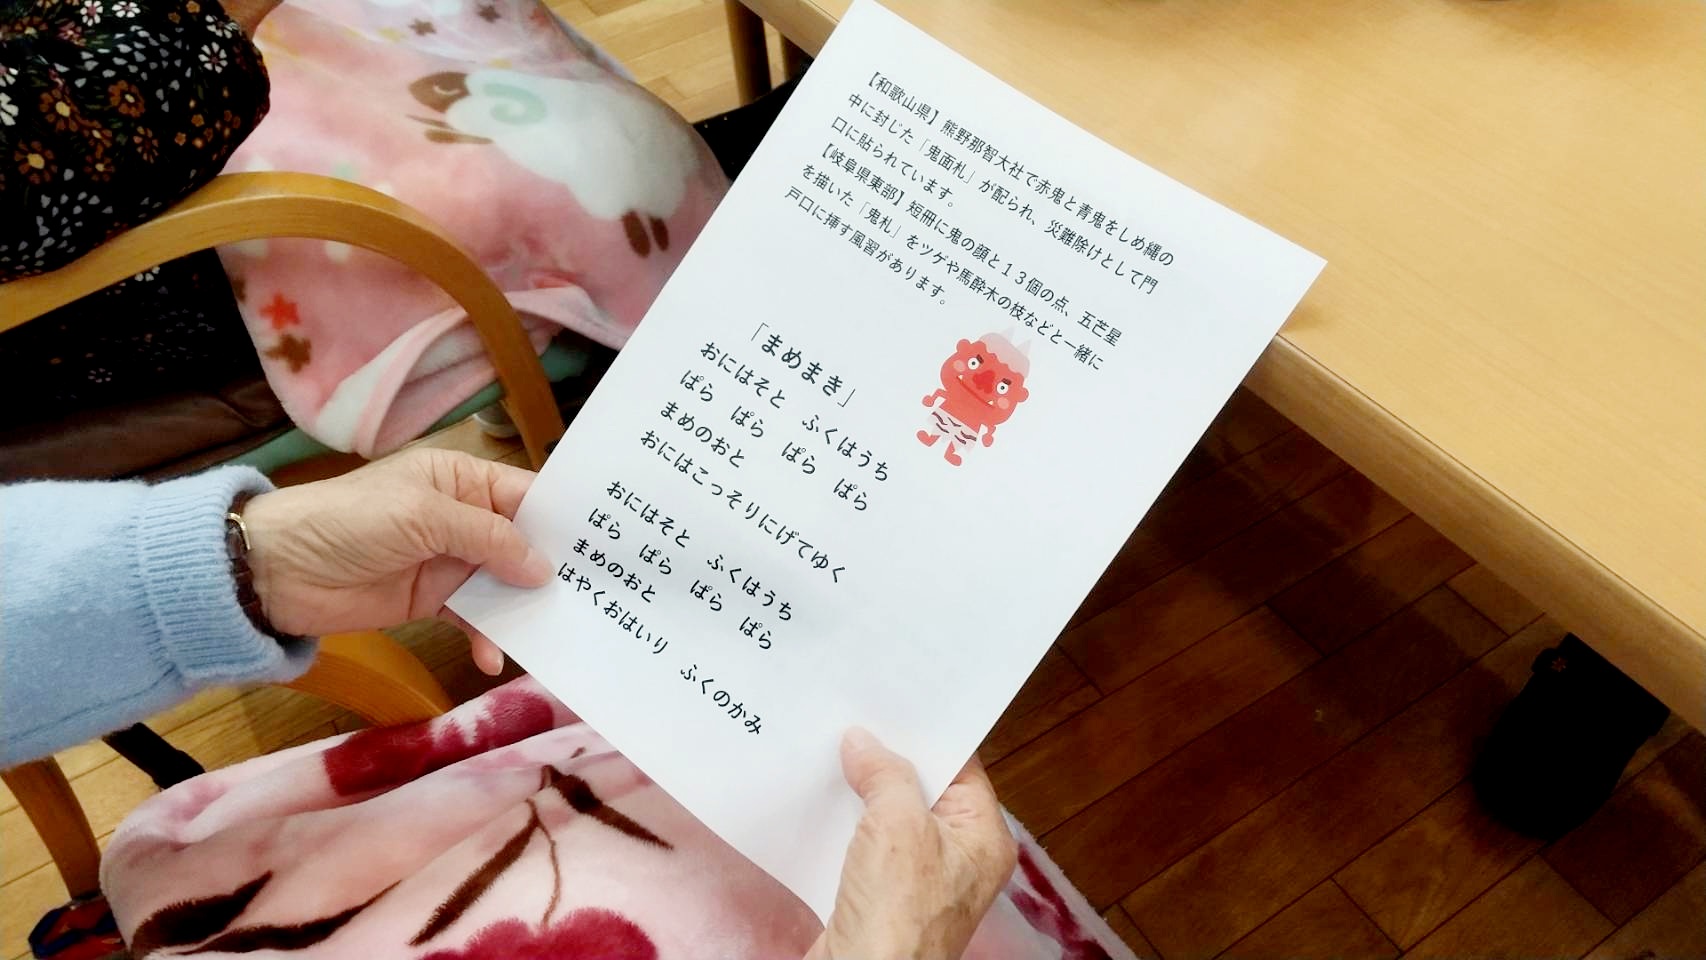 【和歌山県】熊野那智大社で赤鬼と青鬼をしめ縄の
中に封じた「鬼面札」が配られ、災難除けとして門
口に貼られています。
【岐阜県東部】短冊に鬼の顔と１３個の点、五芒星
を描いた「鬼札」をツゲや馬酔木の枝などと一緒に
戸口に挿す風習があります。
「まめまき」
おにはそと　ふくはうち
ぱら　ぱら　ぱら　ぱら
まめのおと
おにはこっそりにげてゆく
おにはそと　ふくはうち
ぱら　ぱら　ぱら　ぱら
まめのおと
はやくおはいり　ふくのかみ